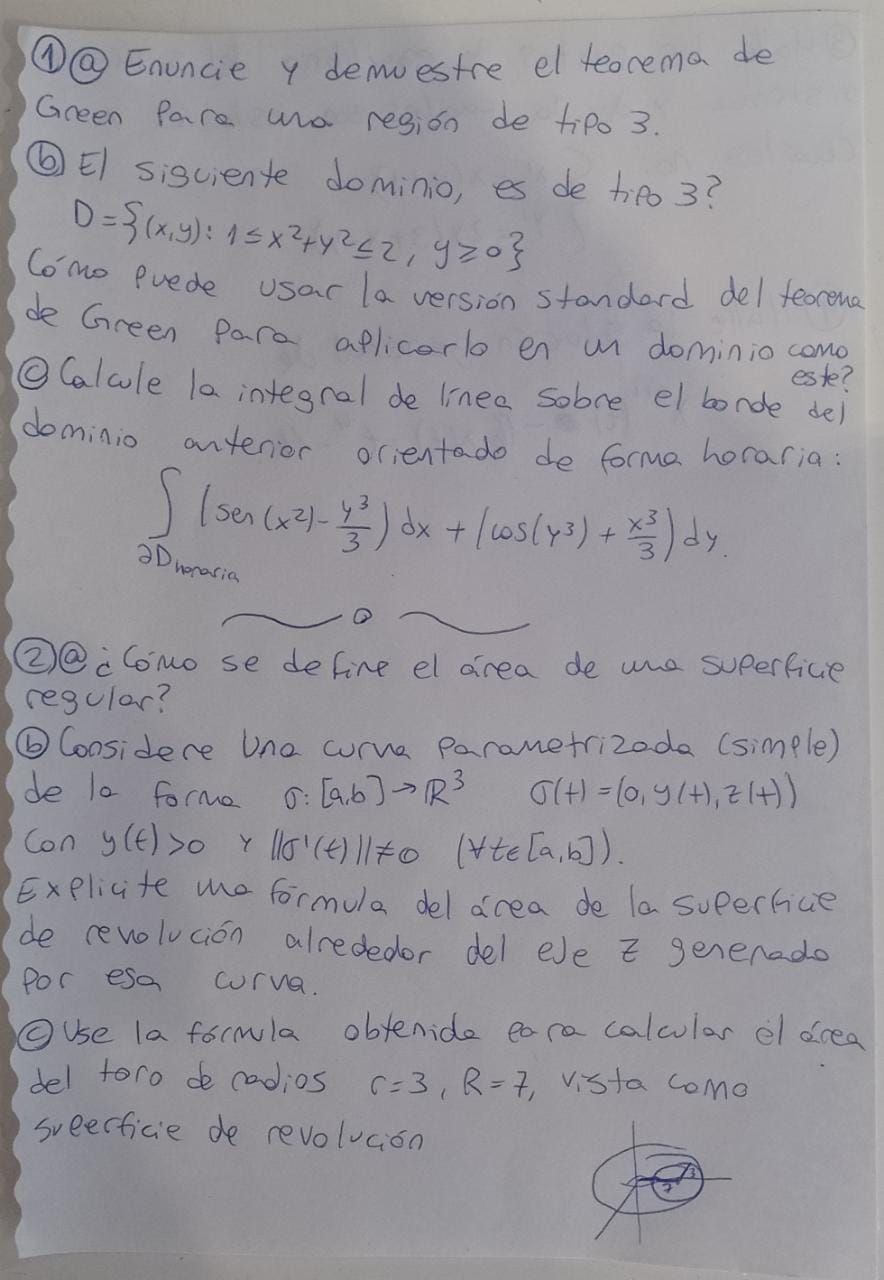 ① ⓐ Enuncie y demuestre el teorema de
Green para una región de tipo 3.
ⓑ El siguiente dominio, es de tipo 3?
D={(x,y): 1≤x²+y²≤2, y≥0}
Cómo puede usar la versión standard del teorema
de Green para aplicarlo en un dominio como
este?
ⓒ Calcule la integral de línea sobre el borde del
dominio anterior orientado de forma horaria:
∫ (sen(x²)-y³/3) dx + (cos(y³) + x³/3) dy.
∂D horaria
② ⓐ ¿Cómo se define el área de una superficie
regular?
ⓑ Considere una curva parametrizada (simple)
de la forma σ: [a,b]→ℝ³ σ(t)=(0, y(t), z(t))
con y(t)>0 y ||σ'(t)||≠0 (∀t∈[a,b]).
Explicite una fórmula del área de la superficie
de revolución alrededor del eje z generado
por esa curva.
ⓒ Use la fórmula obtenida para calcular el área
del toro de radios r=3, R=7, vista como
superficie de revolución
7 3